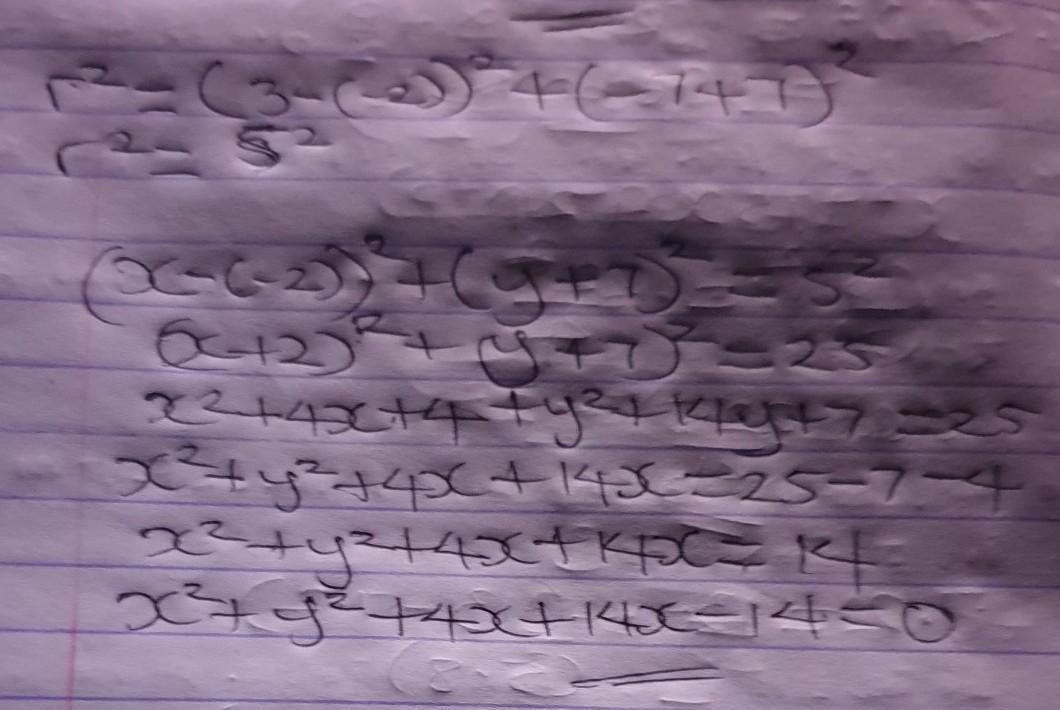 r² = (3-(-2))² + (-7+7)²
r² = 5²
(x-(-2))² + (y+7)² = 5²
(x+2)² + (y+7)² = 25
x²+4x+4+y²+14y+7 = 25
x²+y²+4x+14x=25-7-4
x²+y²+4x+14x=14
x²+y²+4x+14x-14=0